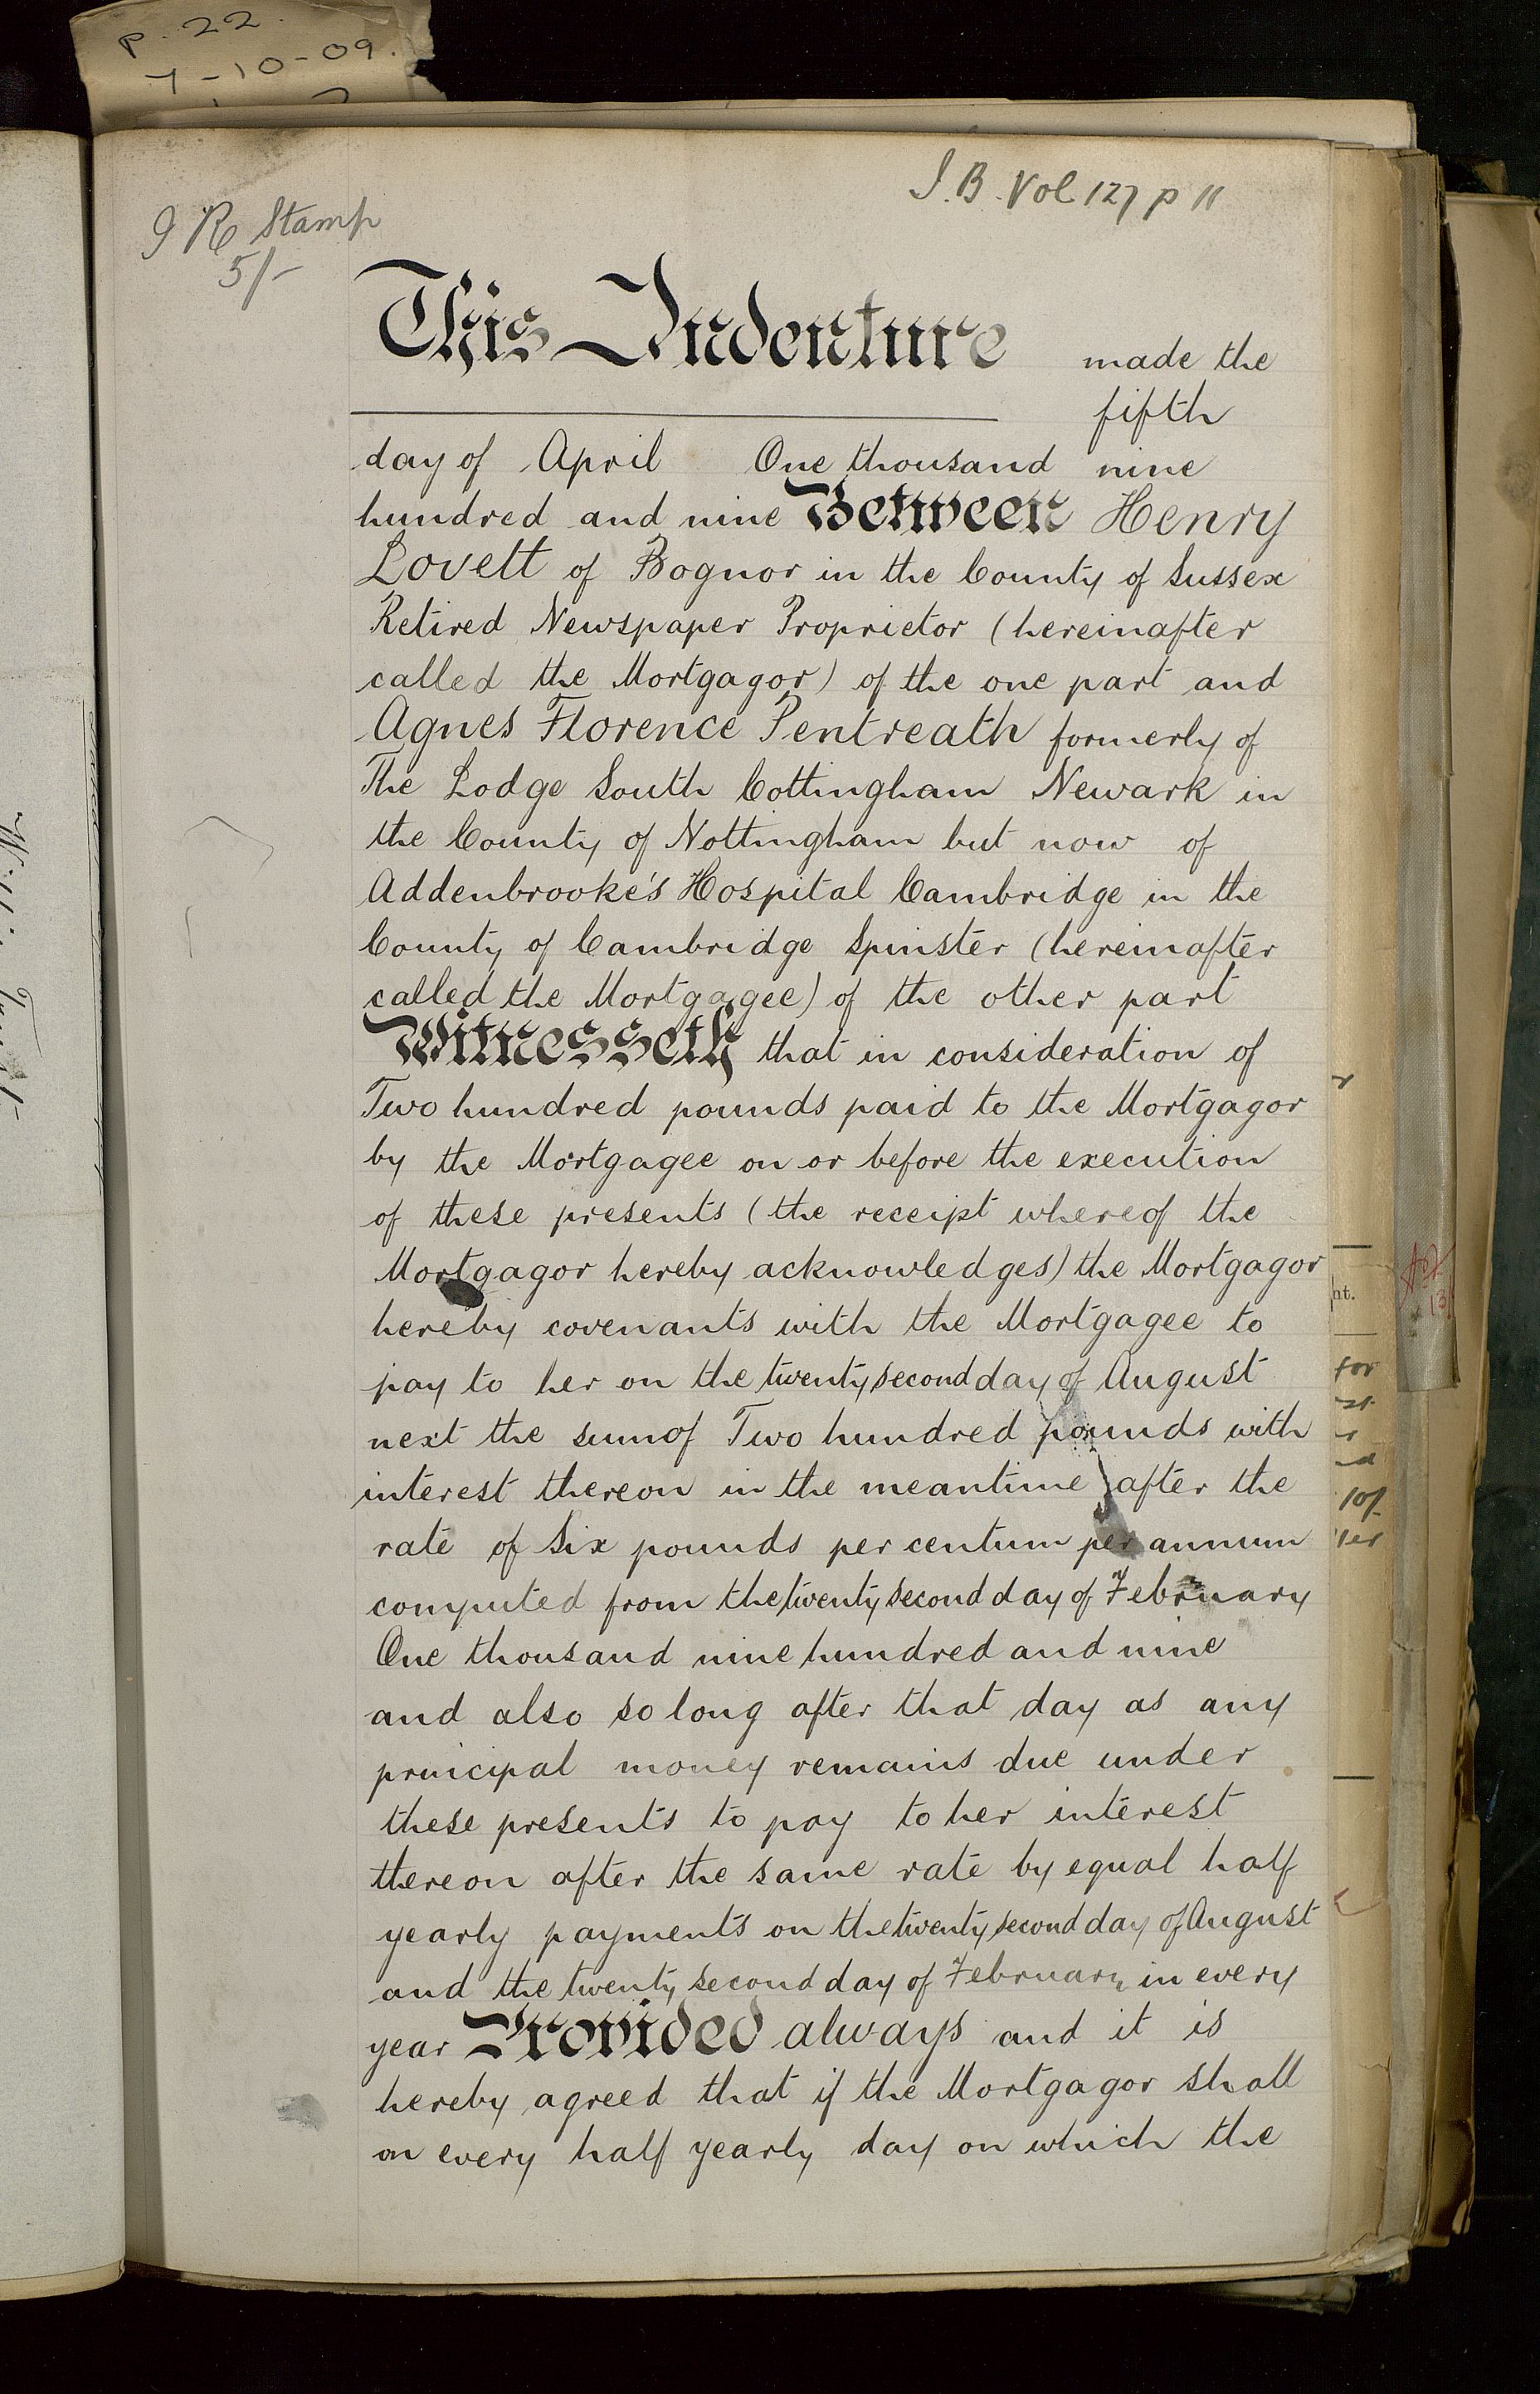 p. 22
7-10-09.
I.B. Vol 127 p 11
I R Stamp
5/-
This Indenture made the
fifth
day of April One thousand nine
hundred and nine Between Henry
Lovett of Bognor in the County of Sussex
Retired Newspaper Proprietor (hereinafter
called the Mortgagor) of the one part and
Agnes Florence Pentreath formerly of
The Lodge South Cottingham Newark in
the County of Nottingham but now of
Addenbrooke's Hospital Cambridge in the
County of Cambridge Spinster (hereinafter
called the Mortgagee) of the other part
Witnesseth that in consideration of
Two hundred pounds paid to the Mortgagor
by the Mortgagee on or before the execution
of these presents (the receipt whereof the
Mortgagor hereby acknowledges) the Mortgagor
hereby covenants with the Mortgagee to
pay to her on the twenty second day of August
next the sum of Two hundred pounds with
interest thereon in the meantime after the
rate of Six pounds per centum per annum
computed from the twenty second day of February
One thousand nine hundred and nine
and also so long after that day as any
principal money remains due under
these presents to pay to her interest
thereon after the same rate by equal half
yearly payments on the twenty second day of August
and the twenty second day of February in every
year Provided always and it is
hereby agreed that if the Mortgagor shall
on every half yearly day on which the
ht.
for
10/-